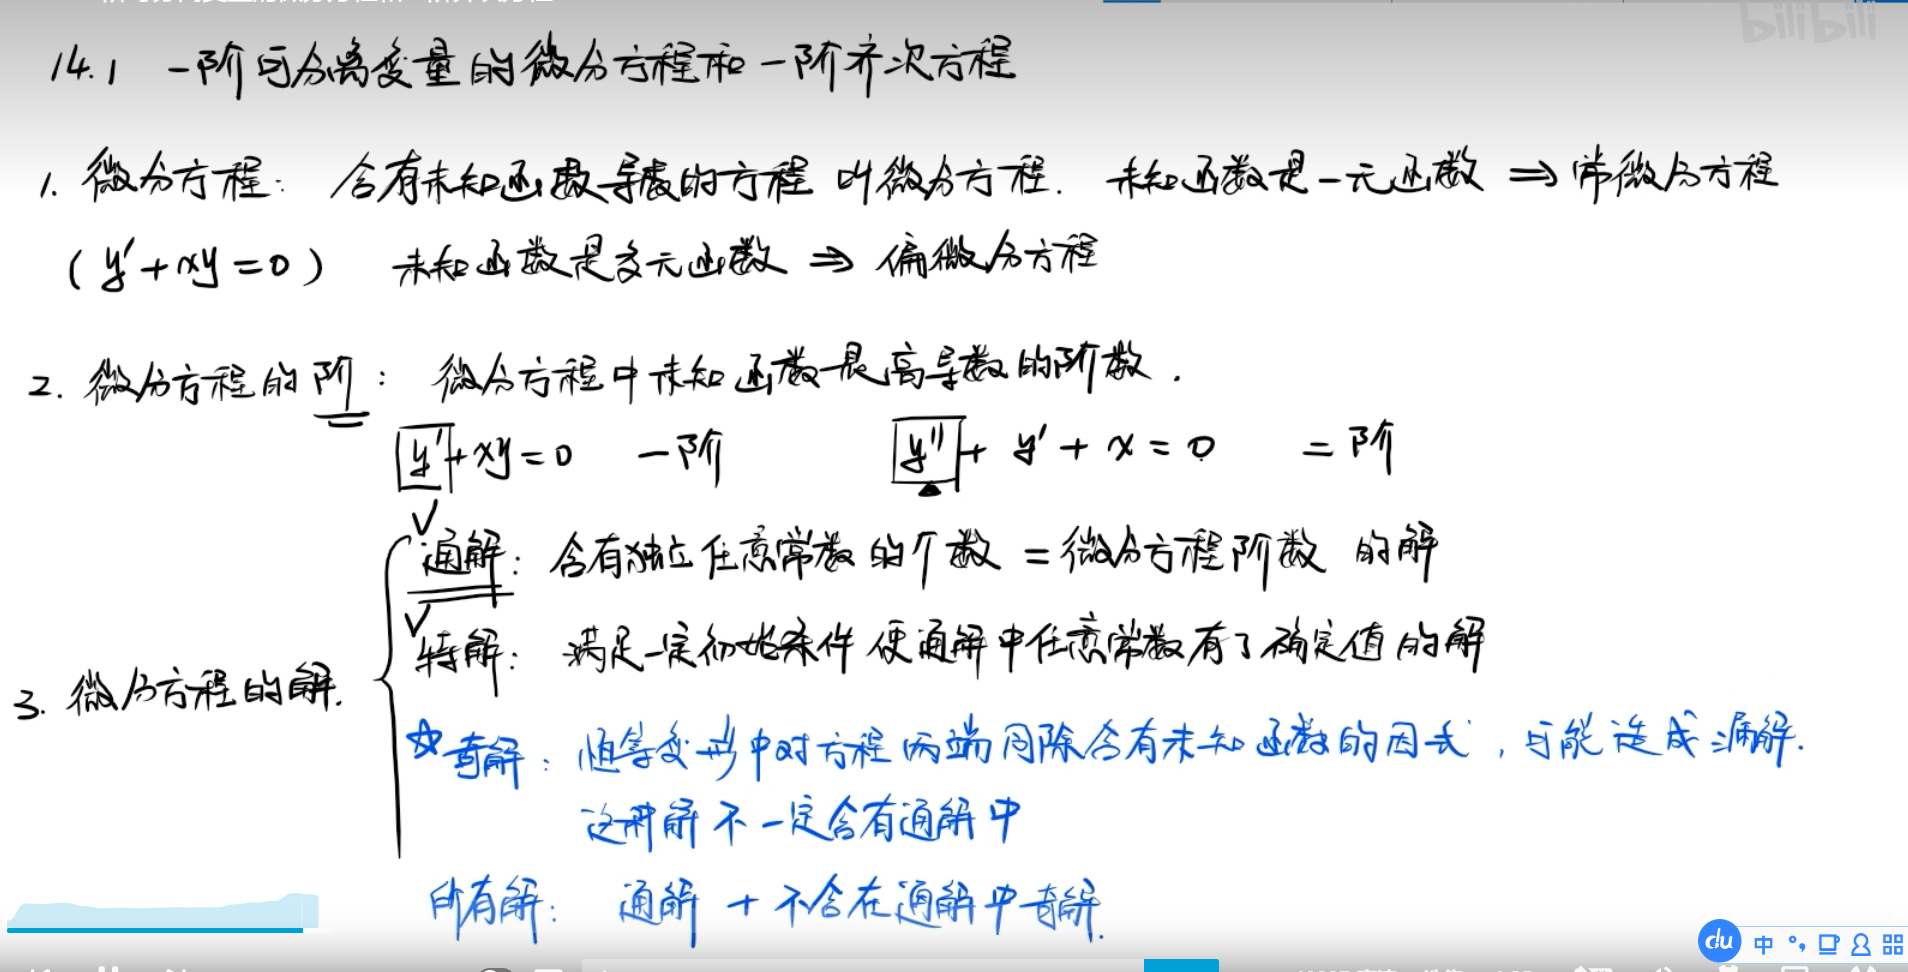 bilibili
14.1 一阶可分离变量的微分方程和一阶齐次方程
1. 微分方程: 含有未知函数导数的方程 叫微分方程. 未知函数是一元函数 ⇒ 常微分方程
(y'+xy=0) 未知函数是多元函数 ⇒ 偏微分方程
2. 微分方程的阶: 微分方程中未知函数最高导数的阶数.
y'+xy=0 一阶 y''+y'+x=0 二阶
通解: 含有独立任意常数的个数 = 微分方程阶数 的解
特解: 满足一定初始条件 使通解中任意常数有了确定值的解
3. 微分方程的解.
☆奇解: 恒等变形中对方程两端同除含有未知函数的因式, 可能造成漏解.
这种解不一定含有通解中
所有解: 通解 + 不含在通解中奇解.
du 中